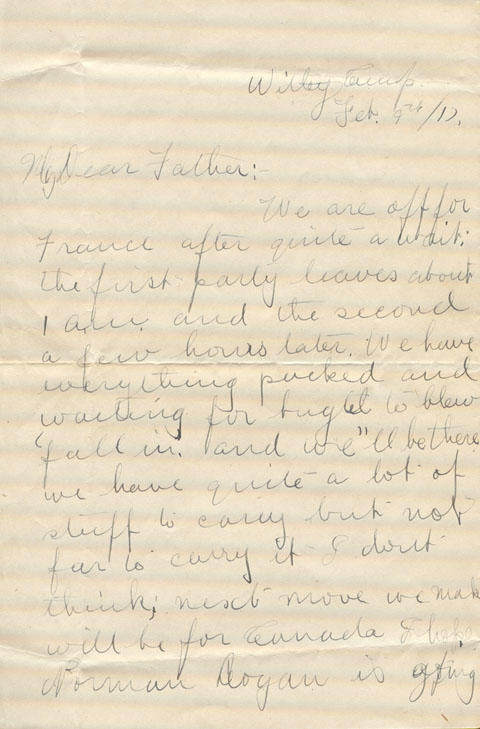 Witley Camp.
Feb. 9th/17.
My Dear Father:-
We are off for
France after quite a wait;
the first party leaves about
1 a.m. and the second
a few hours later. We have
everything packed and
waiting for bugle to blew
"fall in." and we"ll be there
we have quite a lot of
stuff to carry but not
far to carry it I don't
think; next move we mak
will be for Canada I hope.
Norman is going